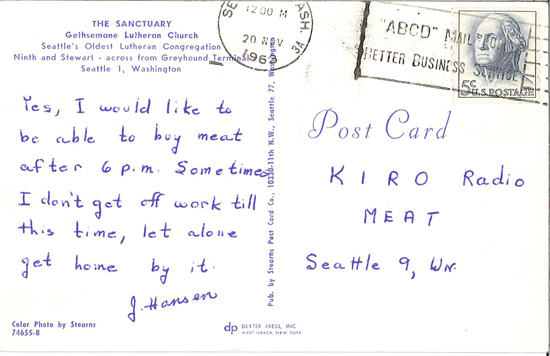 THE SANCTUARY
Gethsemane Lutheran Church
Seattle's Oldest Lutheran Congregation
Ninth and Stewart - across from Greyhound Terminal
Seattle 1, Washington
Yes, I would like to
be able to buy meat
after 6 p.m. Sometimes
I don't get off work till
this time, let alone
get home by it.
J. Hansen
Color Photo by Stearns
74655-B
Pub. by Stearns Post Card Co., 10330-11th N.W., Seattle 77, Washington
dp DEXTER PRESS, INC.
WEST NYACK, NEW YORK
SE ASH.
12:00 M
20 NOV
3A
"ABCD" MAIL FOR
BETTER BUSINESS SERVICE
5¢ U.S. POSTAGE
Post Card
KIRO Radio
MEAT
Seattle 9, Wn.